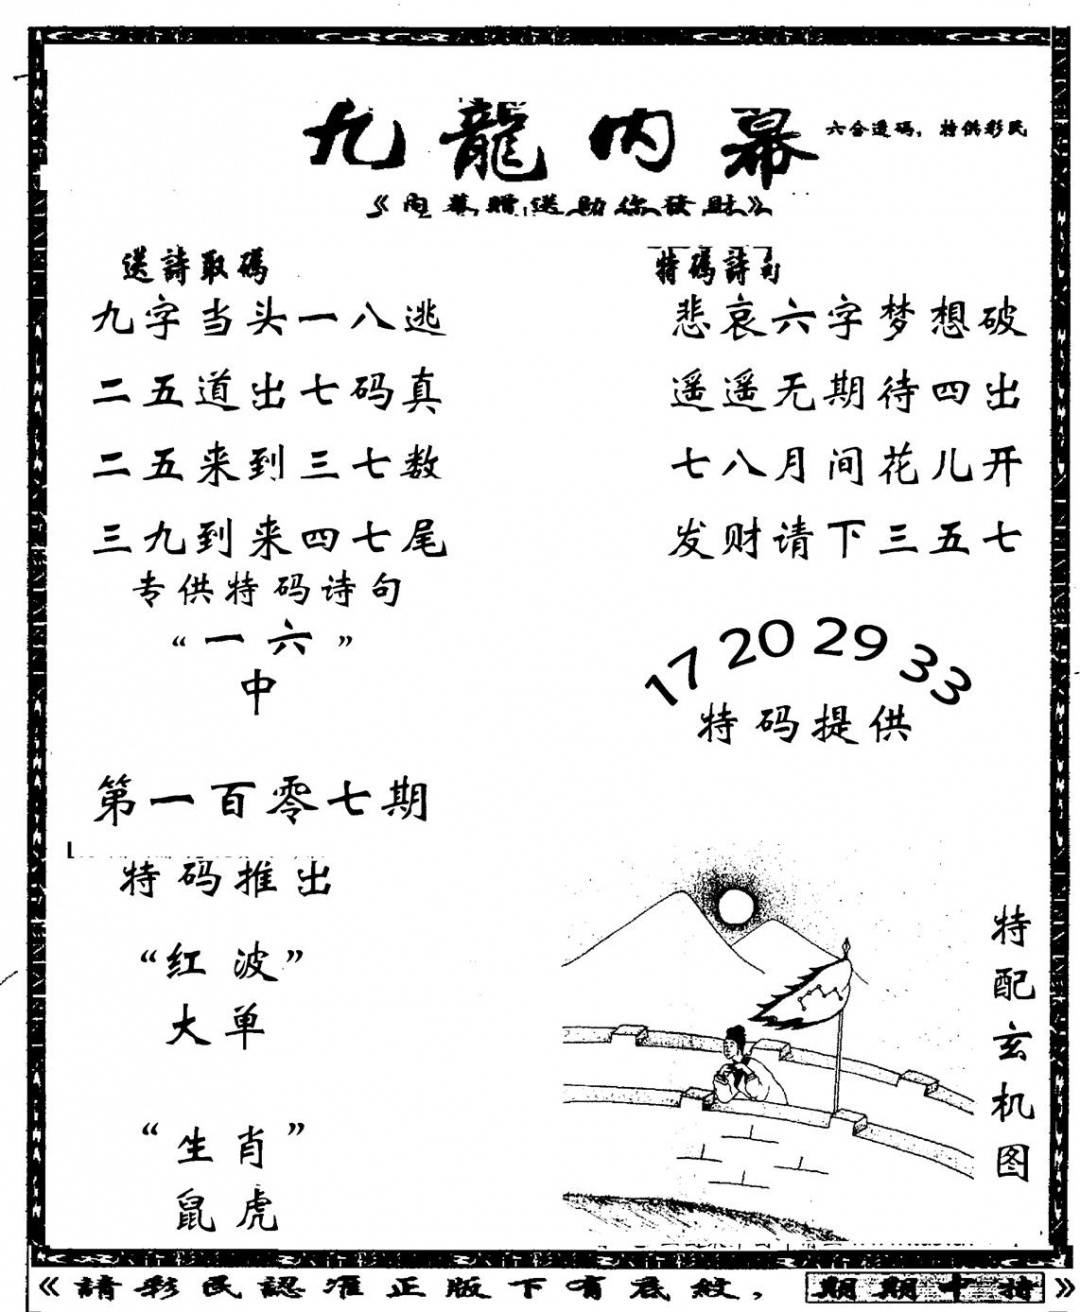 九龍内幕
六合透码，特供彩民
《内幕赠送助你發財》
送詩取碼
九字当头一八逃
二五道出七码真
二五来到三七数
三九到来四七尾
专供特码诗句
“一六”
中
第一百零七期
特码推出
“红波”
大单
“生肖”
鼠虎
特碼詩句
悲哀六字梦想破
遥遥无期待四出
七八月间花儿开
发财请下三五七
17 20 29 33
特码提供
特配玄机图
《請彩民認准正版下有底紋，期期中特》